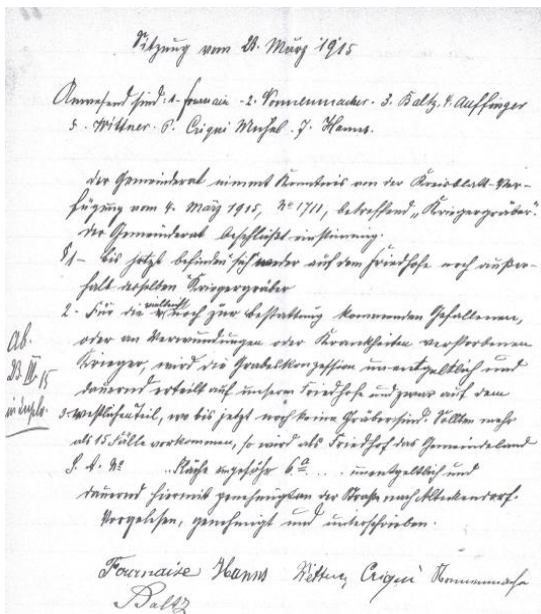 Sitzung vom 23. März 1915
Anwesend sind: 1. Fournaise - 2. Sonnenmacher. 3. Baltz. 4. Auffinger
5. Wittner. 6. Criqui Michel. 7. Hanns.
Der Gemeinderat nimmt Kenntnis von der Kreisblatt-Ver-
fügung vom 4. März 1915, No 1711, betreffend „Kriegergräber".
Der Gemeinderat beschließt einstimmig:
§ 1 - Bis jetzt befinden sich weder auf dem Friedhofe noch außer-
halb desselben Kriegergräber
2. Für die vielleicht noch zur Bestattung kommenden Gefallenen,
oder an Verwundungen oder Krankheiten verstorbenen
Krieger, wird die Grabeskonzession unentgeltlich und
dauernd erteilt auf unserm Friedhofe und zwar auf dem
3. Westlichenteil, wo bis jetzt noch keine Gräber sind. Sollten mehr
als 15 Fälle vorkommen, so wird als Friedhof das Gemeindeland
S. A. No .. Fläche ungefähr 6a .... unentgeltlich und
dauernd hiermit genehmigt an der Straße nach Alteckendorf.
Vorgelesen, genehmigt und unterschrieben.
Fournaise Hanns Wittner Criqui Sonnenmacher
Baltz
Ab.
23 III 15